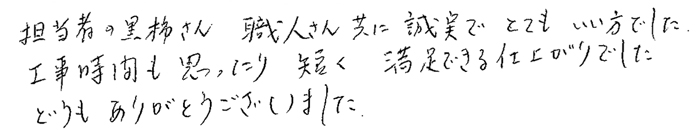 担当者の黒柿さん 職人さん共に 誠実で とても いい方でした.
工事時間も 思ったより 短く 満足できる仕上がりでした
どうも ありがとうございました.